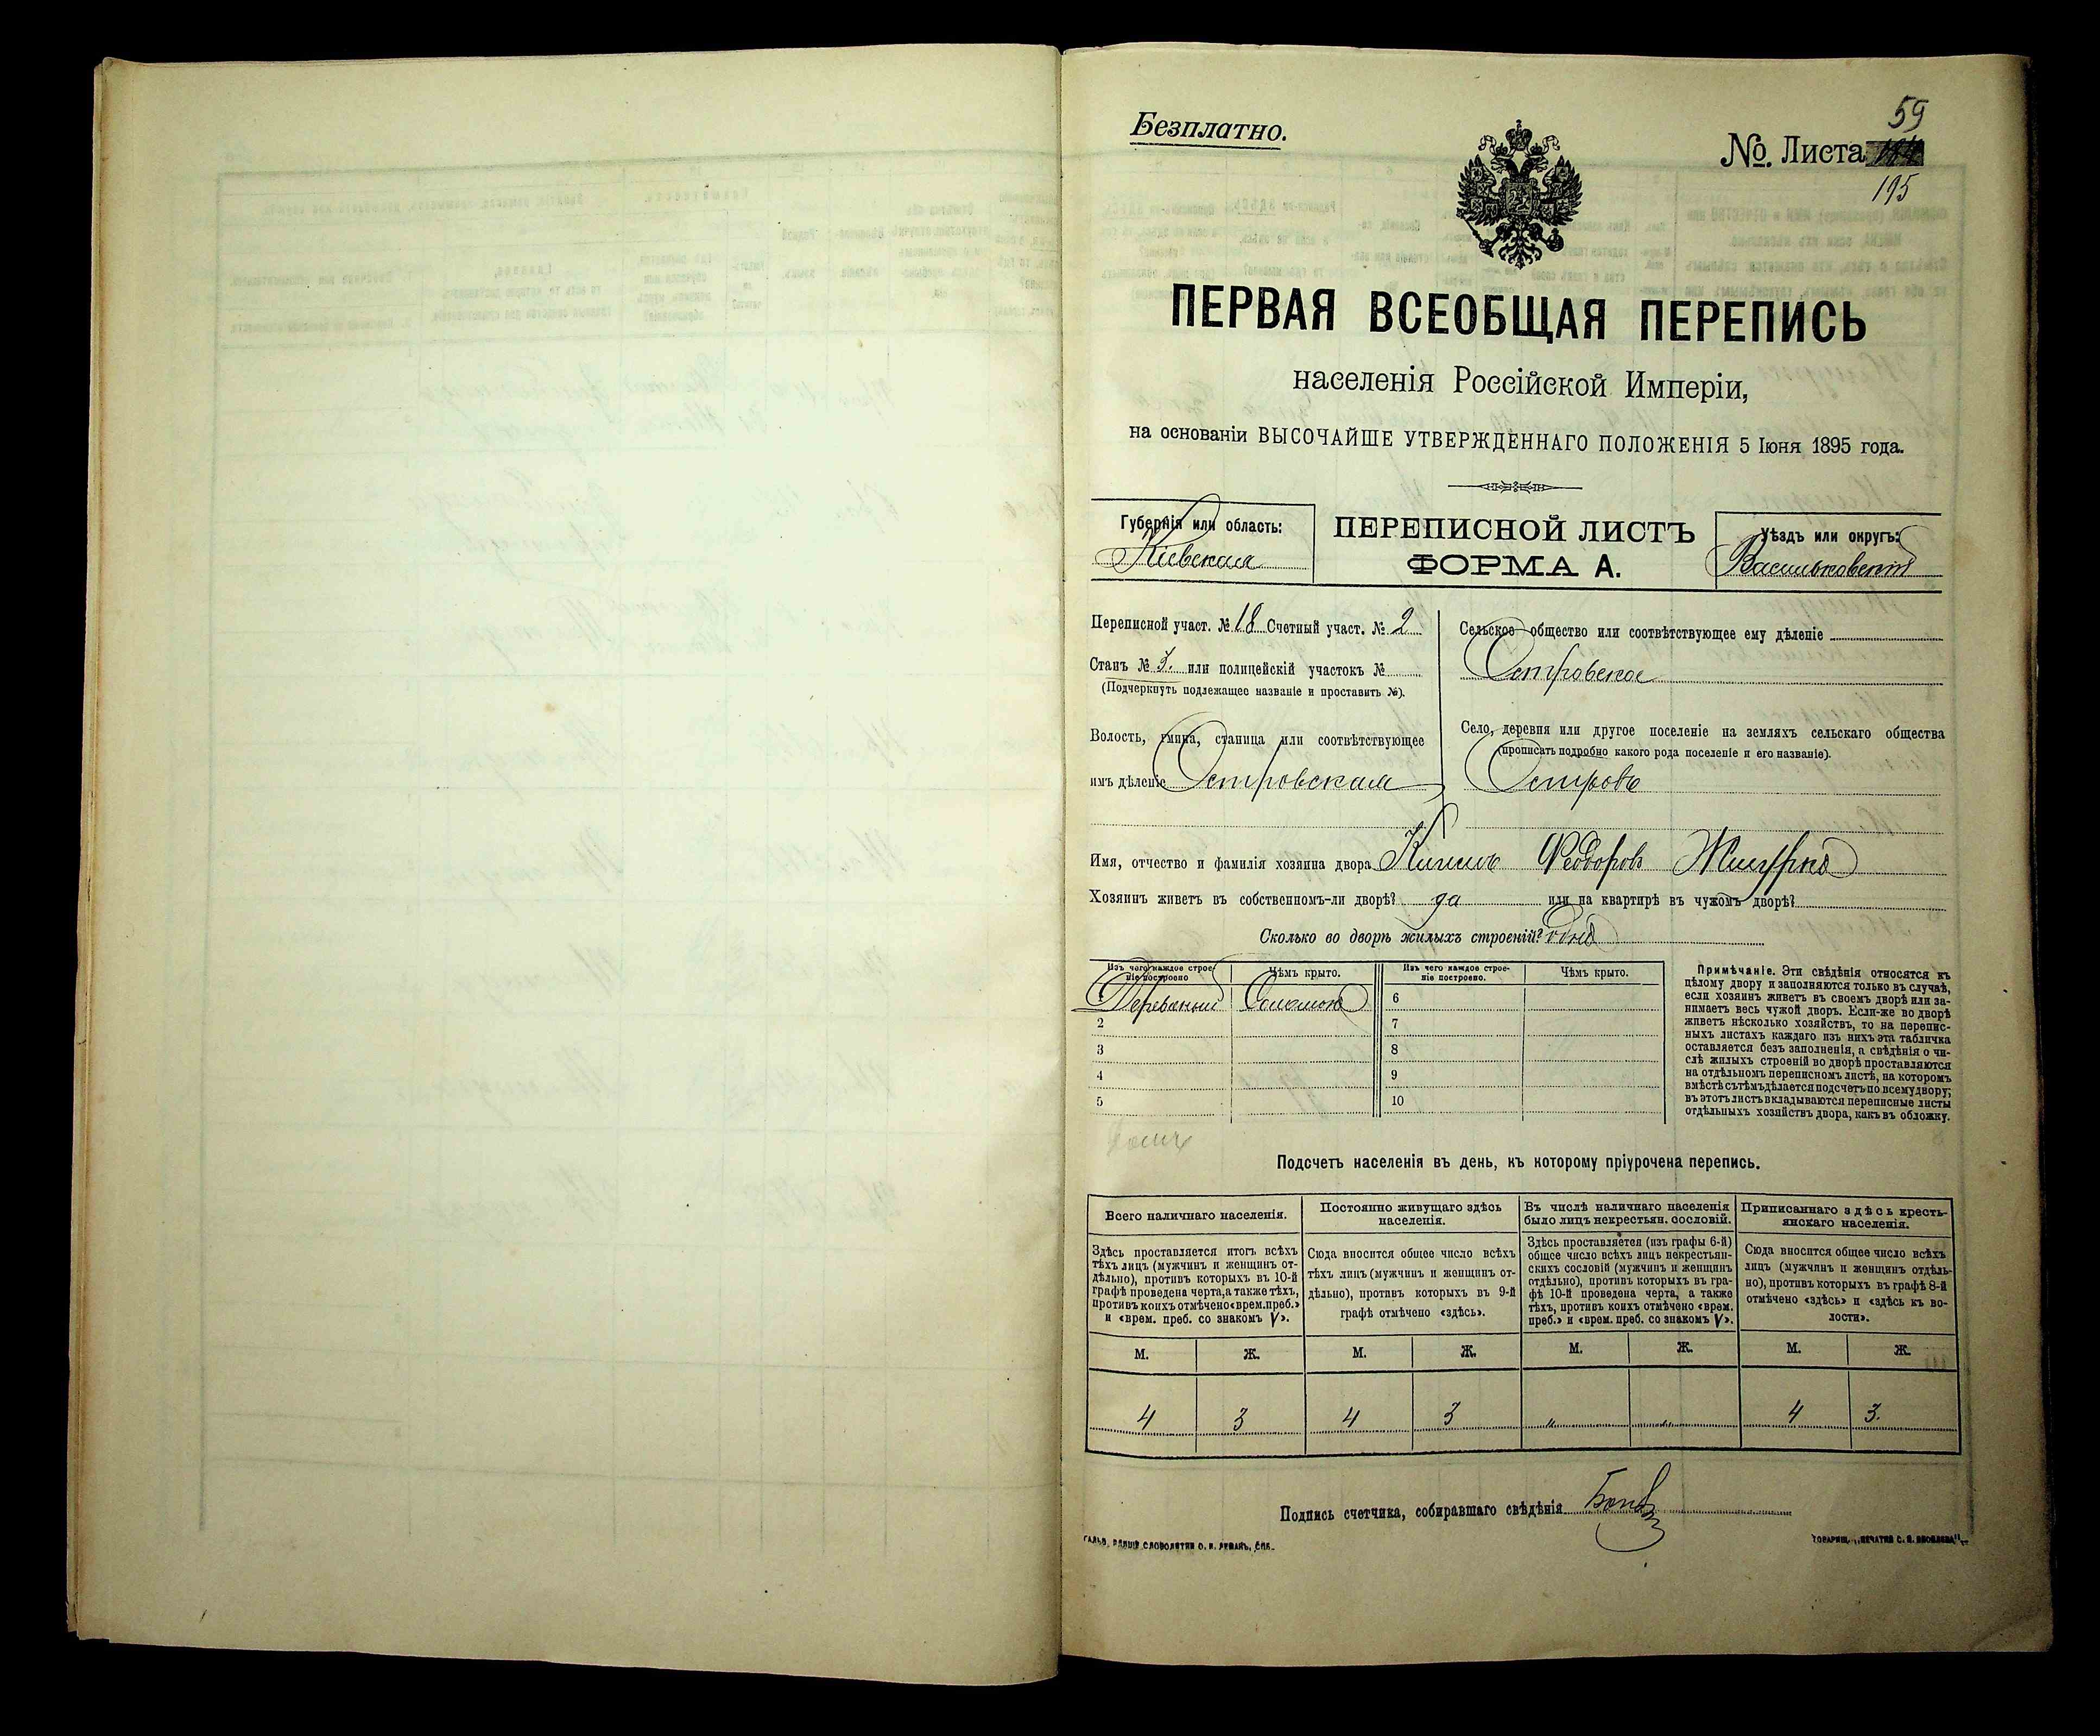 Безплатно.
59
№. Листа
195
ПЕРВАЯ ВСЕОБЩАЯ ПЕРЕПИСЬ
населенія Россійской Имперіи,
на основаніи ВЫСОЧАЙШЕ УТВЕРЖДЕННАГО ПОЛОЖЕНІЯ 5 Іюня 1895 года.
Губернія или область:
Кіевская
ПЕРЕПИСНОЙ ЛИСТЪ
ФОРМА А.
Уѣздъ или округъ:
Васильковскій
Переписной участ. № 18 Счетный участ. № 2
Станъ № 3. или полицейскій участокъ №
(Подчеркнуть подлежащее названіе и проставить №).
Волость, гмина, станица или соотвѣтствующее
имъ дѣленіе Островская
Сельское общество или соотвѣтствующее ему дѣленіе
Островское
Село, деревня или другое поселеніе на земляхъ сельскаго общества
(прописать подробно какого рода поселеніе и его названіе).
Островъ
Имя, отчество и фамилія хозяина двора Феодоровъ
Хозяинъ живетъ въ собственномъ-ли дворѣ? да или на квартирѣ въ чужомъ дворѣ?
Сколько во дворѣ жилыхъ строеній? одно
Изъ чего каждое строе-
ніе построено
Чѣмъ крыто.
Изъ чего каждое строе-
ніе построено.
Чѣмъ крыто.
Деревянный Соломою 6
2 7
3 8
4 9
5 10
Примѣчаніе. Эти свѣдѣнія относятся къ
цѣлому двору и заполняются только въ случаѣ,
если хозяинъ живетъ въ своемъ дворѣ или за-
нимаетъ весь чужой дворъ. Если-же во дворѣ
живетъ нѣсколько хозяйствъ, то на перепис-
ныхъ листахъ каждаго изъ нихъ эта табличка
оставляется безъ заполненія, а свѣдѣнія о чи-
слѣ жилыхъ строеній во дворѣ проставляются
на отдѣльномъ переписномъ листѣ, на которомъ
вмѣстѣ съ тѣмъ дѣлается подсчетъ по всему двору;
въ этотъ листъ вкладываются переписные листы
отдѣльныхъ хозяйствъ двора, какъ въ обложку.
Подсчетъ населенія въ день, къ которому пріурочена перепись.
Всего наличнаго населенія.
Здѣсь проставляется итогъ всѣхъ
тѣхъ лицъ (мужчинъ и женщинъ от-
дѣльно), противъ которыхъ въ 10-й
графѣ проведена черта, а также тѣхъ,
противъ коихъ отмѣчено «врем. преб.»
и «врем. преб. со знакомъ V».
Постоянно живущаго здѣсь
населенія.
Сюда вносится общее число всѣхъ
тѣхъ лицъ (мужчинъ и женщинъ от-
дѣльно), противъ которыхъ въ 9-й
графѣ отмѣчено «здѣсь».
Въ числѣ наличнаго населенія
было лицъ некрестьян. сословій.
Здѣсь проставляется (изъ графы 6-й)
общее число всѣхъ лицъ некрестьян-
скихъ сословій (мужчинъ и женщинъ
отдѣльно), противъ которыхъ въ гра-
фѣ 10-й проведена черта, а также
тѣхъ, противъ коихъ отмѣчено «врем.
преб.» и «врем. преб. со знакомъ V».
Приписаннаго здѣсь кресть-
янскаго населенія.
Сюда вносится общее число всѣхъ
лицъ (мужчинъ и женщинъ отдѣль-
но), противъ которыхъ въ графѣ 8-й
отмѣчено «здѣсь» и «здѣсь къ во-
лости».
М. Ж. М. Ж. М. Ж. М. Ж.
4 3 4 3 " " 4 3.
Подпись счетчика, собиравшаго свѣдѣнія